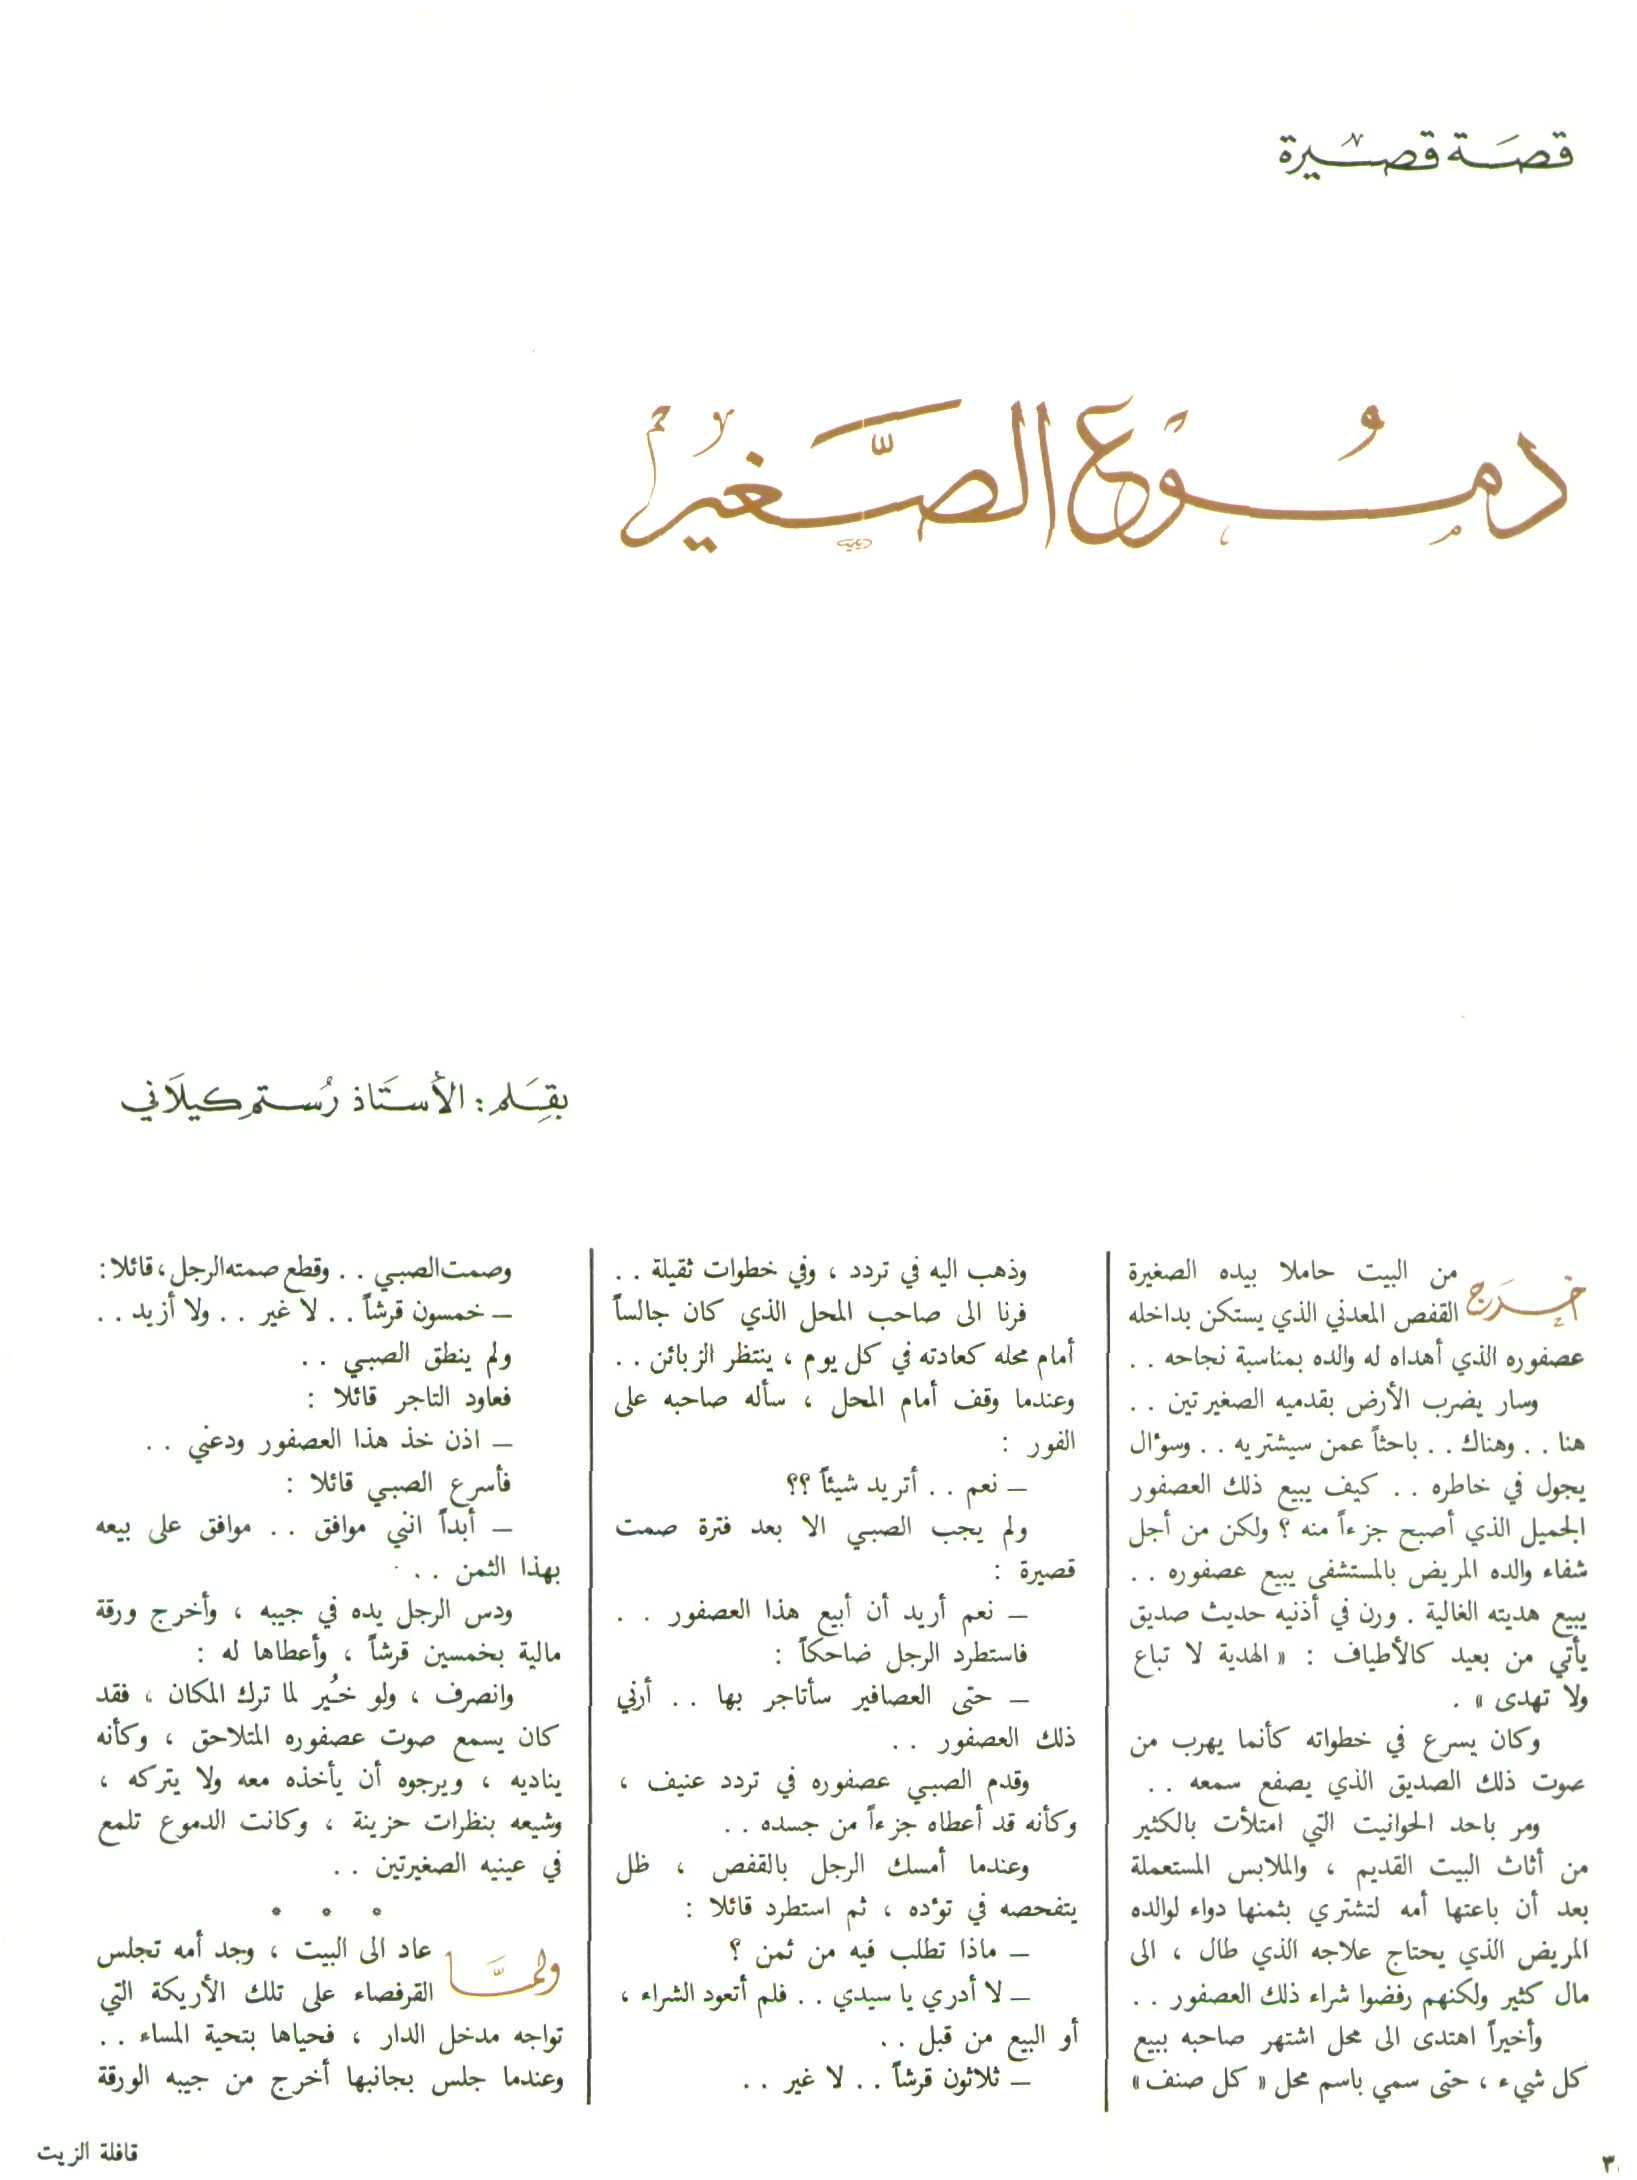 قصة قصيرة
دموع الصغير
بقلم: الأستاذ رستم كيلاني
خرج من البيت حاملا بيده الصغيرة
القفص المعدني الذي يستكن بداخله
عصفوره الذي أهداه له والده بمناسبة نجاحه . .
وسار يضرب الأرض بقدميه الصغيرتين . .
هنا . . وهناك . . باحثاً عمن سيشتريه . . وسؤال
يجول في خاطره . . كيف يبيع ذلك العصفور
الجميل الذي أصبح جزءاً منه ؟ ولكن من أجل
شفاء والده المريض بالمستشفى يبيع عصفوره . .
يبيع هديته الغالية . ورن في أذنيه حديث صديق
يأتي من بعيد كالأطياف : « الهدية لا تباع
ولا تهدى » .
وكان يسرع في خطواته كأنما يهرب من
صوت ذلك الصديق الذي يصفع سمعه . .
ومر باحد الحوانيت التي امتلأت بالكثير
من أثاث البيت القديم ، والملابس المستعملة
بعد أن باعتها أمه لتشتري بثمنها دواء لوالده
المريض الذي يحتاج علاجه الذي طال ، الى
مال كثير ولكنهم رفضوا شراء ذلك العصفور . .
وأخيراً اهتدى الى محل اشتهر صاحبه ببيع
كل شيء ، حتى سمي باسم محل « كل صنف »
وذهب اليه في تردد ، وفي خطوات ثقيلة . .
فرنا الى صاحب المحل الذي كان جالساً
أمام محله كعادته في كل يوم ، ينتظر الزبائن . .
وعندما وقف أمام المحل ، سأله صاحبه على
الفور :
ـ نعم . . أتريد شيئاً ؟؟
ولم يجب الصبي الا بعد فترة صمت
قصيرة :
ـ نعم أريد أن أبيع هذا العصفور . .
فاستطرد الرجل ضاحكاً :
ـ حتى العصافير سأتاجر بها . . أرني
ذلك العصفور . .
وقدم الصبي عصفوره في تردد عنيف ،
وكأنه قد أعطاه جزءاً من جسده . .
وعندما أمسك الرجل بالقفص ، ظل
يتفحصه في تؤده ، ثم استطرد قائلا :
ـ ماذا تطلب فيه من ثمن ؟
ـ لا أدري يا سيدي . . فلم أتعود الشراء ،
أو البيع من قبل . .
ـ ثلاثون قرشاً . . لا غير . .
وصمت الصبي . . وقطع صمته الرجل ، قائلا :
ـ خمسون قرشاً . . لا غير . . ولا أزيد . .
ولم ينطق الصبي . .
فعاود التاجر قائلا :
ـ اذن خذ هذا العصفور ودعني . .
فأسرع الصبي قائلا :
ـ أبداً انني موافق . . موافق على بيعه
بهذا الثمن . .
ودس الرجل يده في جيبه ، وأخرج ورقة
مالية بخمسين قرشاً ، وأعطاها له :
وانصرف ، ولو خُير لما ترك المكان ، فقد
كان يسمع صوت عصفوره المتلاحق ، وكأنه
يناديه ، ويرجوه أن يأخذه معه ولا يتركه ،
وشيعه بنظرات حزينة ، وكانت الدموع تلمع
في عينيه الصغيرتين . .
* * *
ولمَّا عاد الى البيت ، وجد أمه تجلس
القرفصاء على تلك الأريكة التي
تواجه مدخل الدار ، فحياها بتحية المساء . .
وعندما جلس بجانبها أخرج من جيبه الورقة
قافلة الزيت